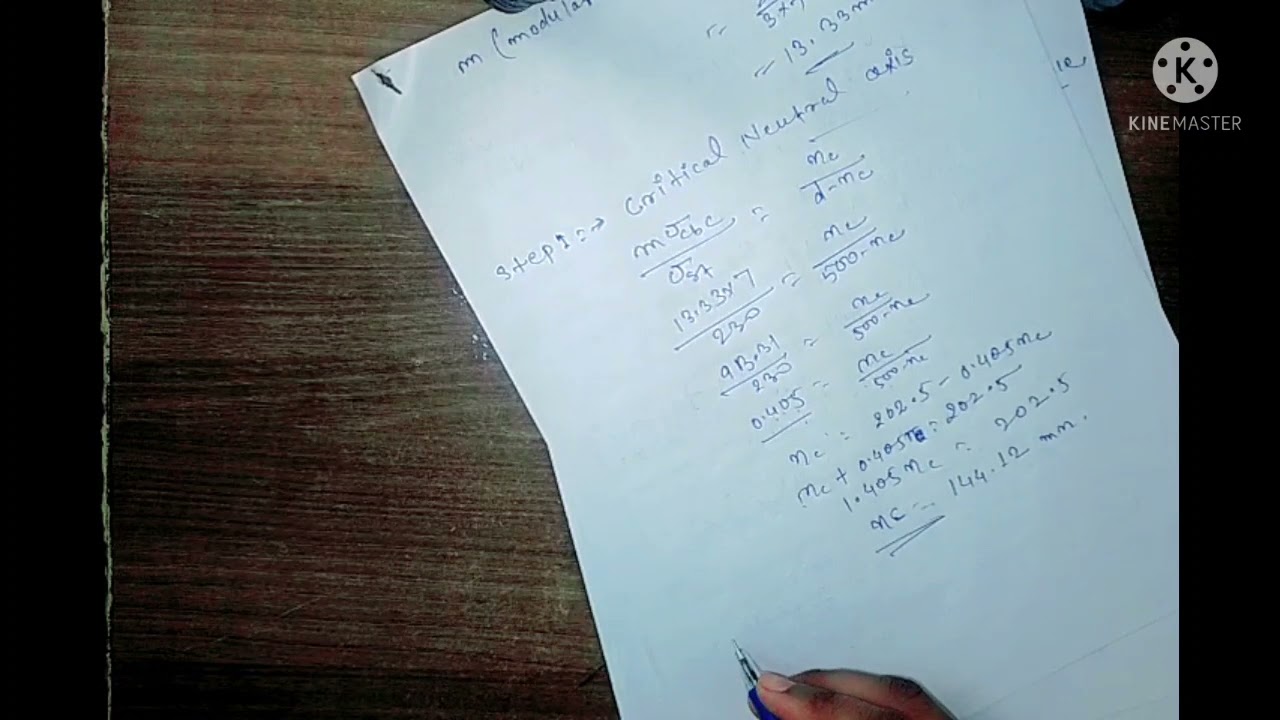 m (modular
3×7
= 13.33m
Step 1:→ Critical Neutral axis
mσcbc / σst = nc / d-nc
13.33×7 / 230 = nc / 500-nc
93.31 / 230 = nc / 500-nc
0.405 = nc / 500-nc
nc = 202.5 - 0.405nc
nc + 0.405nc = 202.5
1.405nc = 202.5
nc = 144.12 mm.
K
KINEMASTER